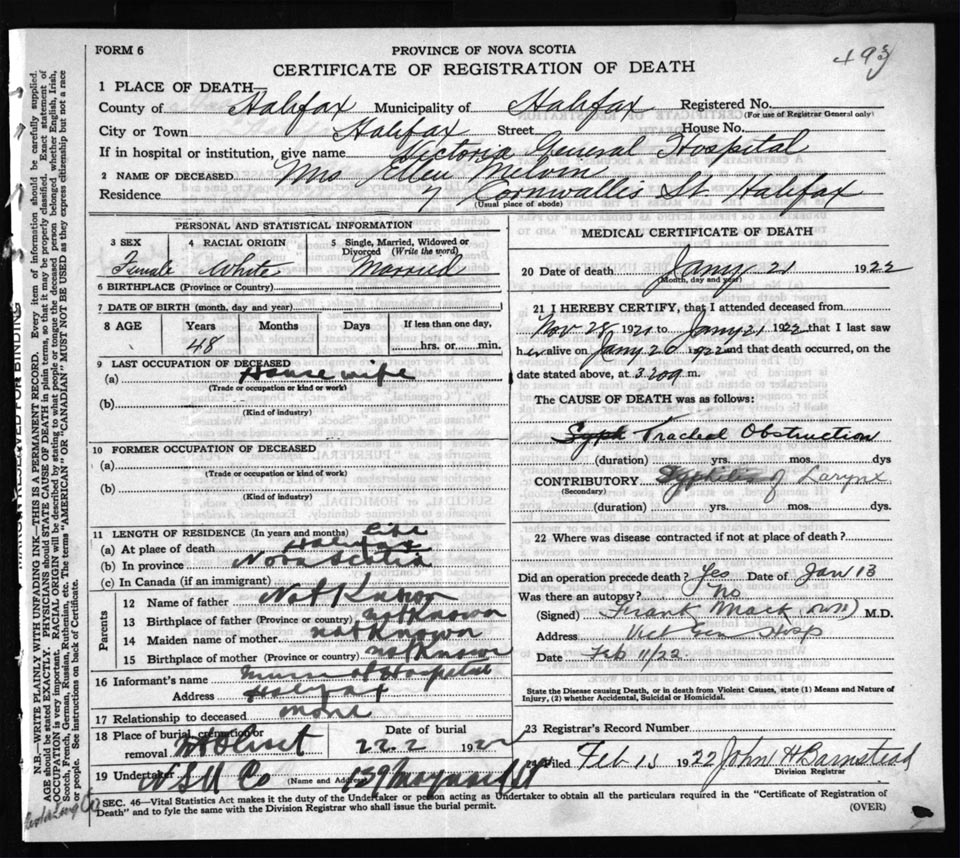 FORM 6
PROVINCE OF NOVA SCOTIA
493
CERTIFICATE OF REGISTRATION OF DEATH
1 PLACE OF DEATH—
County of Halifax Municipality of Halifax Registered No.
(For use of Registrar General only)
City or Town Halifax Street House No.
If in hospital or institution, give name Victoria General Hospital
2 NAME OF DECEASED Mrs Ellen Melvin
Residence 7 Cornwallis St Halifax
(Usual place of abode)
PERSONAL AND STATISTICAL INFORMATION
3 SEX 4 RACIAL ORIGIN 5 Single, Married, Widowed or Divorced (Write the word)
Female White Married
6 BIRTHPLACE (Province or Country)
7 DATE OF BIRTH (month, day and year)
8 AGE Years Months Days If less than one day,
48 hrs. or min.
9 LAST OCCUPATION OF DECEASED
(a) House wife
(Trade or occupation or kind or work)
(b)
(Kind of industry)
10 FORMER OCCUPATION OF DECEASED
(a)
(Trade or occupation or kind of work)
(b)
(Kind of industry)
11 LENGTH OF RESIDENCE (In years and months) life
(a) At place of death Halifax
(b) In province Nova Scotia
(c) In Canada (if an immigrant)
Parents
12 Name of father Not Known
13 Birthplace of father (Province or country) not Known
14 Maiden name of mother not Known
15 Birthplace of mother (Province or country) not Known
16 Informant's name Hospital
Address Halifax
17 Relationship to deceased none
18 Place of burial, cremation or removal Mt Olivet Date of burial 22.2 1922
19 Undertaker N S U Co (Name and Address) 139 Maynard St
MEDICAL CERTIFICATE OF DEATH
20 Date of death Jany 21 1922
(Month, day and year)
21 I HEREBY CERTIFY, that I attended deceased from
Nov 28 1921 to Jany 21 1922 that I last saw
her alive on Jany 20 1922 and that death occurred, on the
date stated above, at 3.20 a m.
The CAUSE OF DEATH was as follows:
Syph Tracheal Obstruction
(duration) yrs. mos. dys
CONTRIBUTORY Syphilis of Larynx
(Secondary)
(duration) yrs. mos. dys.
22 Where was disease contracted if not at place of death?
Did an operation precede death? Yes Date of Jan 13
Was there an autopsy? No
(Signed) Frank Mack M.D.
Address Vict Gen Hosp
Date Feb 11/22
State the Disease causing Death, or in death from Violent Causes, state (1) Means and Nature of Injury, (2) whether Accidental, Suicidal or Homicidal.
23 Registrar's Record Number
24 Filed Feb 13 1922 John H Barnstead
Division Registrar
SEC. 46—Vital Statistics Act makes it the duty of the Undertaker or person acting as Undertaker to obtain all the particulars required in the "Certificate of Registration of
Death" and to fyle the same with the Division Registrar who shall issue the burial permit.
(OVER)
MARGIN RESERVED FOR BINDING
N.B.—WRITE PLAINLY WITH UNFADING INK—THIS IS A PERMANENT RECORD. Every item of information should be carefully supplied.
AGE should be stated EXACTLY. PHYSICIANS should STATE CAUSE OF DEATH in plain terms, so that it may be properly classified. Exact statement of
OCCUPATION is very important. RACIAL ORIGIN will be described by stating to what people or tongue the deceased person belonged whether English, Irish,
Scotch, French, German, Russian, Ruthenian, etc. The terms "AMERICAN" OR "CANADIAN" MUST NOT BE USED as they express citizenship but not a race
or people. See instructions on back of Certificate.